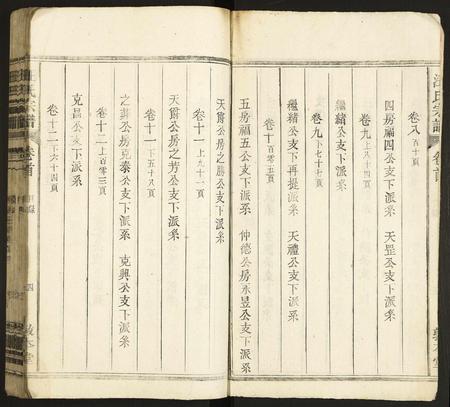 卷八 百十頁
四房福四公支下派系 天罡公支下派系
卷九 上八十四頁
繼緒公支下派系
卷九 下七十七頁
繼緒公支下再提派系 天禮公支下派系
卷十 百零五頁
五房福五公支下派系 仲德公房永昱公支下派系
天爵公房之勝公支下派系
卷十一 上九十一頁
天爵公房之芳公支下派系
卷十一 下五十八頁
之華公房克泰公支下派系 克興公支下派系
卷十二 上百零三頁
克昌公支下派系
卷十二 下六十四頁
汪氏宗譜
卷首
四
敦本堂